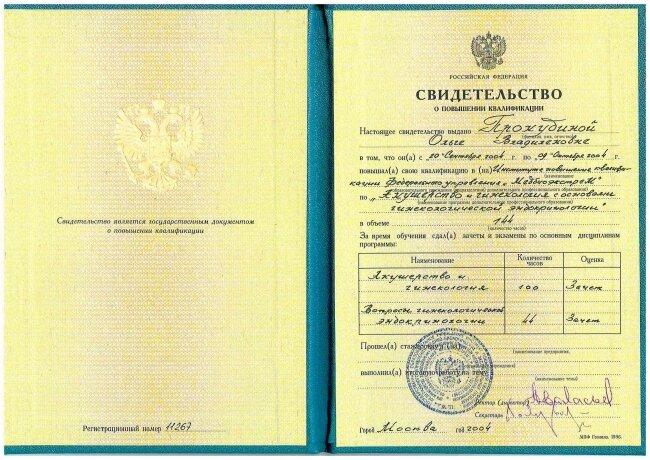 Свидетельство является государственным документом
о повышении квалификации
Регистрационный номер 11267
РОССИЙСКАЯ ФЕДЕРАЦИЯ
СВИДЕТЕЛЬСТВО
О ПОВЫШЕНИИ КВАЛИФИКАЦИИ
Настоящее свидетельство выдано Прокудиной
(фамилия, имя, отчество)
Ольге Владиленовне
в том, что он(а) с 20 Сентября 2004 г. по 09 Октября 2004 г.
повышал(а) свою квалификацию в (на) Институте повышения квалифи-
(наименование)
кации Федерального управления „Медбиоэкстрем"
по „Акушерство и гинекология с основами
гинекологической эндокринологии"
в объеме 144
(количество часов)
За время обучения сдал(а) зачеты и экзамены по основным дисциплинам
программы:
Наименование Количество часов Оценка
Акушерство и
гинекология 100 Зачет
Вопросы гинекологической
эндокринологии 44 Зачет
Прошел(а) стажировку в (на)
(наименование предприятия,
выполнил(а) итоговую работу на тему
(наименование темы)
Ректор (директор)
Секретарь
Город Москва год 2004
МПФ Гознака. 1996.